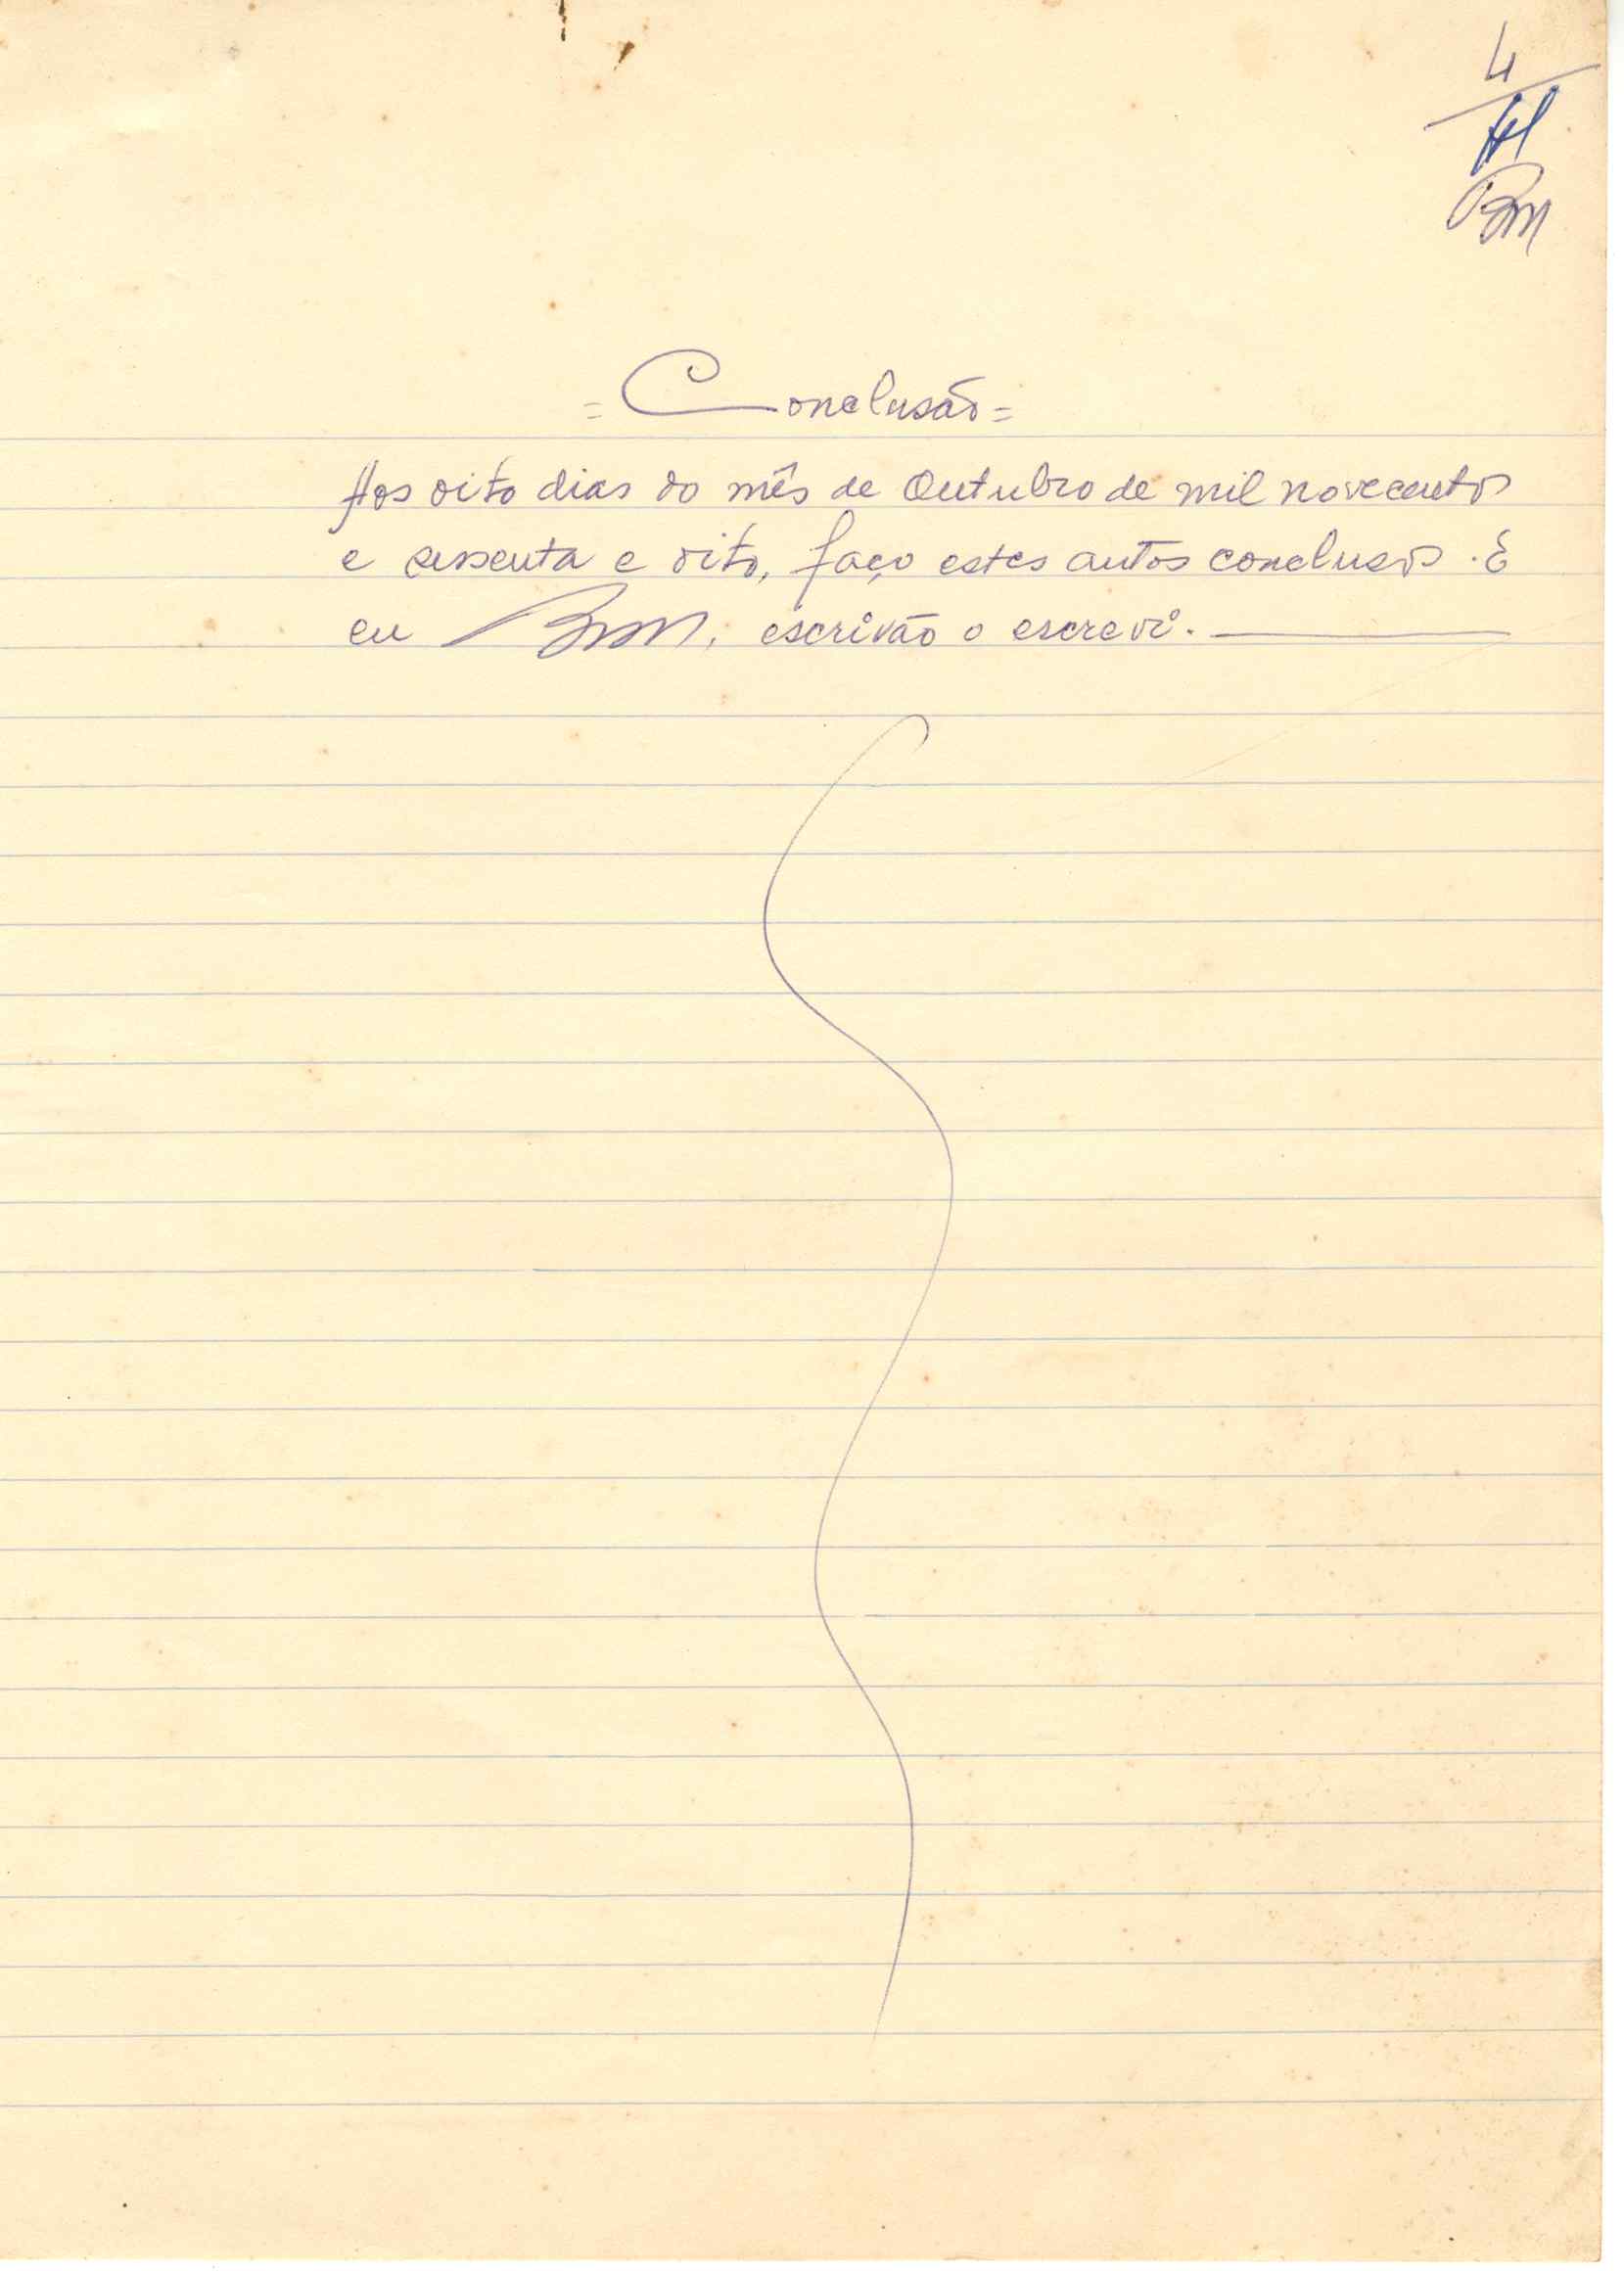 4
Bm
= Conclusão =
Aos oito dias do mês de Outubro de mil novecentos
e sessenta e oito, faço estes autos conclusos. E
eu Bmm, escrivão o escrevi.